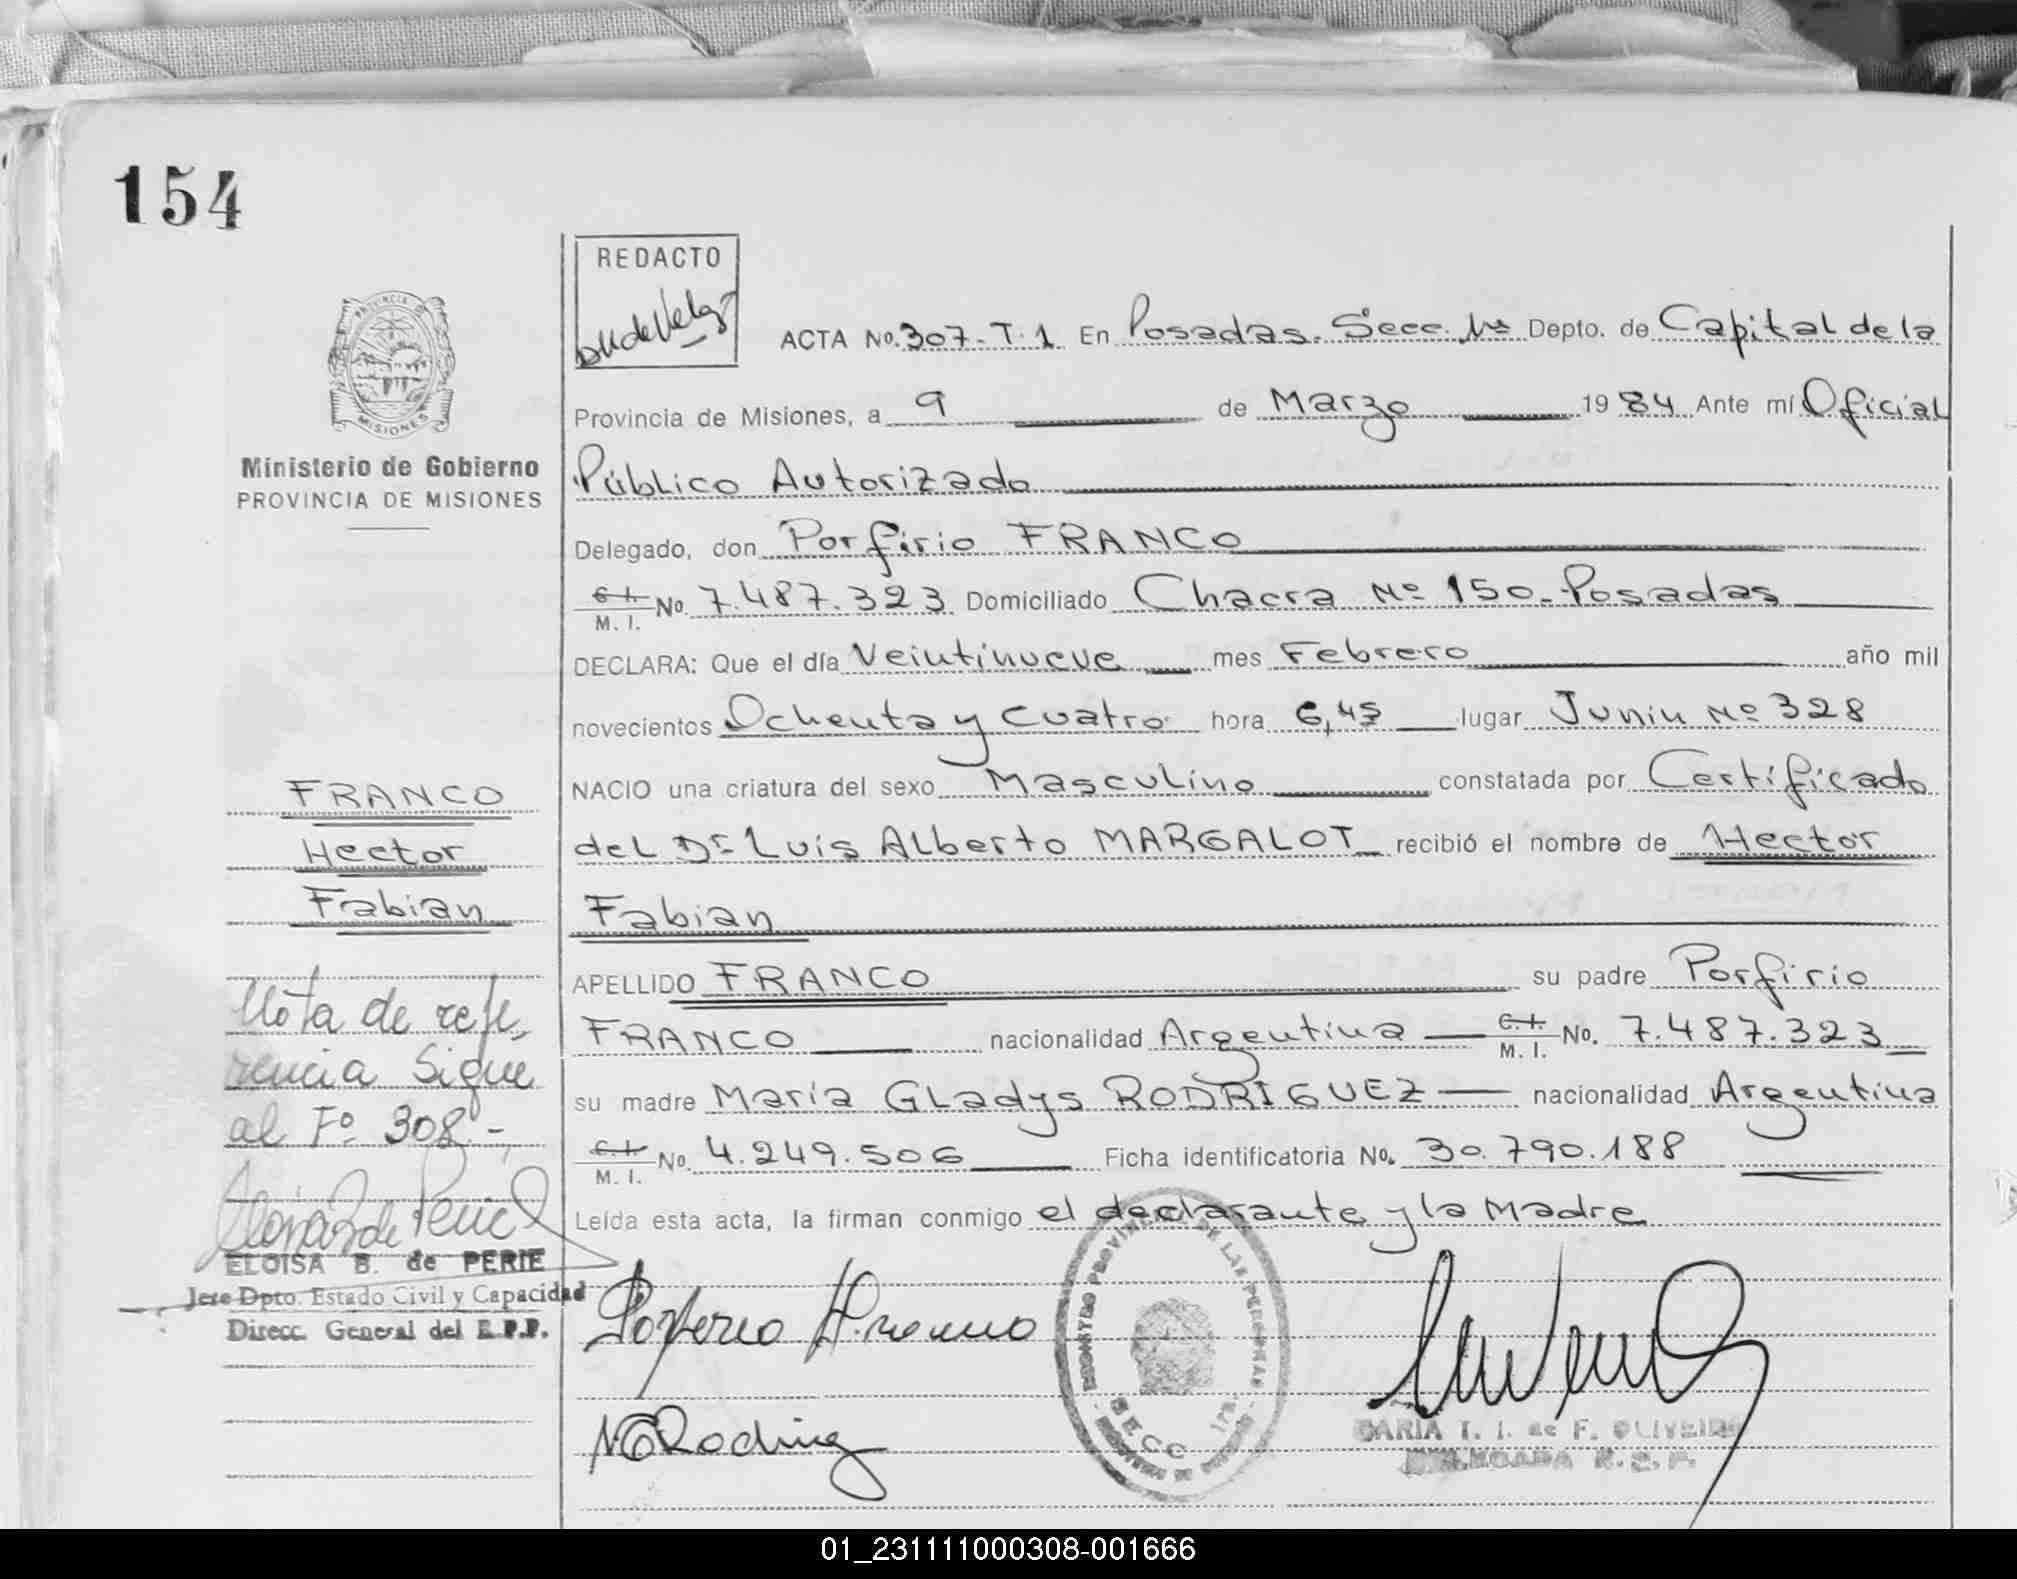 154
REDACTO
PROVINCIA DE
MISIONES
Ministerio de Gobierno
PROVINCIA DE MISIONES
ACTA No. 307-T.1 En Posadas. Secc. 1ra Depto. de Capital de la
Provincia de Misiones, a 9 de Marzo 1984 Ante mí Oficial
Público Autorizado
Delegado, don Porfirio FRANCO
C. I. M. I. No. 7.487.323 Domiciliado Chacra Nº 150-Posadas
DECLARA: Que el día Veintinueve mes Febrero año mil
novecientos Ochenta y Cuatro hora 6,45 lugar Junin Nº 328
NACIO una criatura del sexo Masculino constatada por Certificado
del Dr. Luis Alberto MARGALOT recibió el nombre de Hector
Fabian
APELLIDO FRANCO su padre Porfirio
FRANCO nacionalidad Argentina C. I. M. I. No. 7.487.323
su madre María Gladys RODRIGUEZ nacionalidad Argentina
C. I. M. I. No. 4.249.506 Ficha identificatoria No. 30.790.188
Leída esta acta, la firman conmigo el declarante y la Madre
FRANCO
Hector
Fabian
Nota de refe-
rencia Sigue
al Fº 308.-
ELOISA B. de PERIE
Jefe Dpto. Estado Civil y Capacidad
Direcc. General del R.P.P.
Porfirio Franco
REGISTRO PROVINCIAL DE LAS PERSONAS
SECC. 1ra.
MGRodrig
MARIA T. I. de F. OLIVEIRA
DELEGADA R. P. P.
01_231111000308-001666